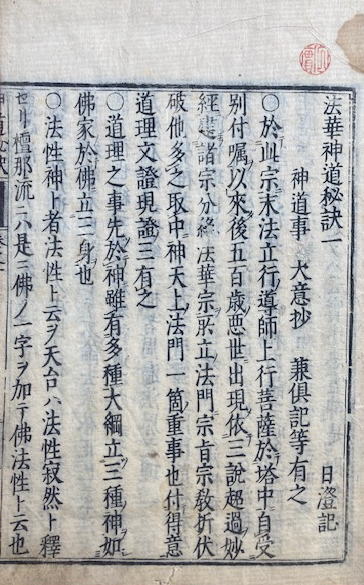 法華神道秘訣一
日澄記
神道事　大意抄　兼俱記等有之
〇於此宗末法立行ノ導師上行菩薩於塔中自受
別付嘱以來後五百歳悪世出現依三說超過妙
經諸宗分絶法華宗所立法門宗旨宗教折伏
破他多之取中神天上法門一箇重事也付得意
道理文證現證三有之
〇道理之事先於神雖有多種大綱立三種神如
佛家於佛立三身也
〇法性神ト者法性ト云ヲ天台ハ法性寂然ト釋
セリ檀那流ニハ是ニ佛ノ一字ヲ加テ佛法性ト云也